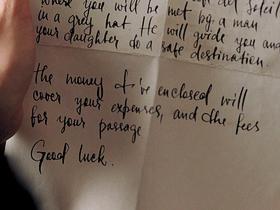 where you will be met by a man
in a grey hat He will guide you and
your daughter do a safe destination.
the money I've enclosed will
cover your expenses, and the fees
for your passage
Good luck.